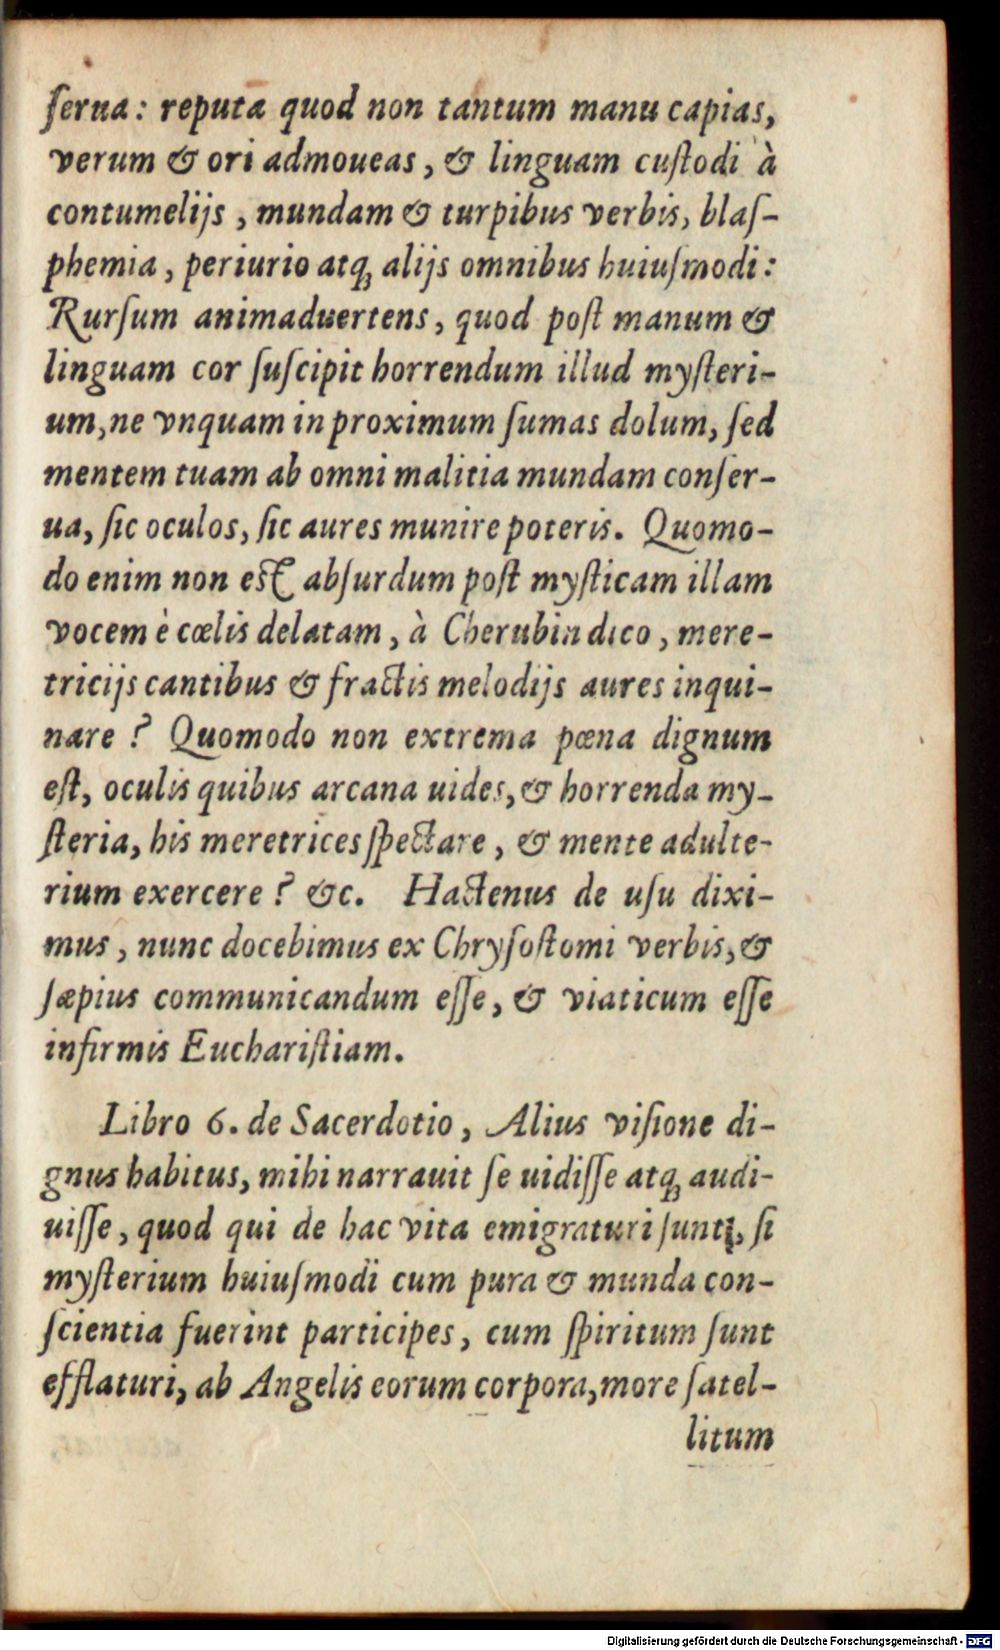 ſerua: reputa quod non tantum manu capias,
verum & ori admoueas, & linguam cuſtodi à
contumelijs, mundam & turpibus verbis, blaſ-
phemia, periurio atq; alijs omnibus huiuſmodi:
Rurſum animaduertens, quod poſt manum &
linguam cor ſuſcipit horrendum illud myſteri-
um, ne vnquam in proximum ſumas dolum, ſed
mentem tuam ab omni malitia mundam conſer-
ua, ſic oculos, ſic aures munire poteris. Quomo-
do enim non est abſurdum poſt myſticam illam
vocem è cœlis delatam, à Cherubin dico, mere-
tricijs cantibus & fractis melodijs aures inqui-
nare? Quomodo non extrema pœna dignum
eſt, oculis quibus arcana uides, & horrenda my-
ſteria, his meretrices ſpectare, & mente adulte-
rium exercere? &c. Hactenus de uſu dixi-
mus, nunc docebimus ex Chryſoſtomi verbis, &
ſæpius communicandum eſſe, & viaticum eſſe
infirmis Euchariſtiam.
Libro 6. de Sacerdotio, Alius viſione di-
gnus habitus, mihi narrauit ſe uidiſſe atq; audi-
uiſſe, quod qui de hac vita emigraturi ſunt, ſi
myſterium huiuſmodi cum pura & munda con-
ſcientia fuerint participes, cum ſpiritum ſunt
efflaturi, ab Angelis eorum corpora, more ſatel-
litum
Digitalisierung gefördert durch die Deutsche Forschungsgemeinschaft - DFG